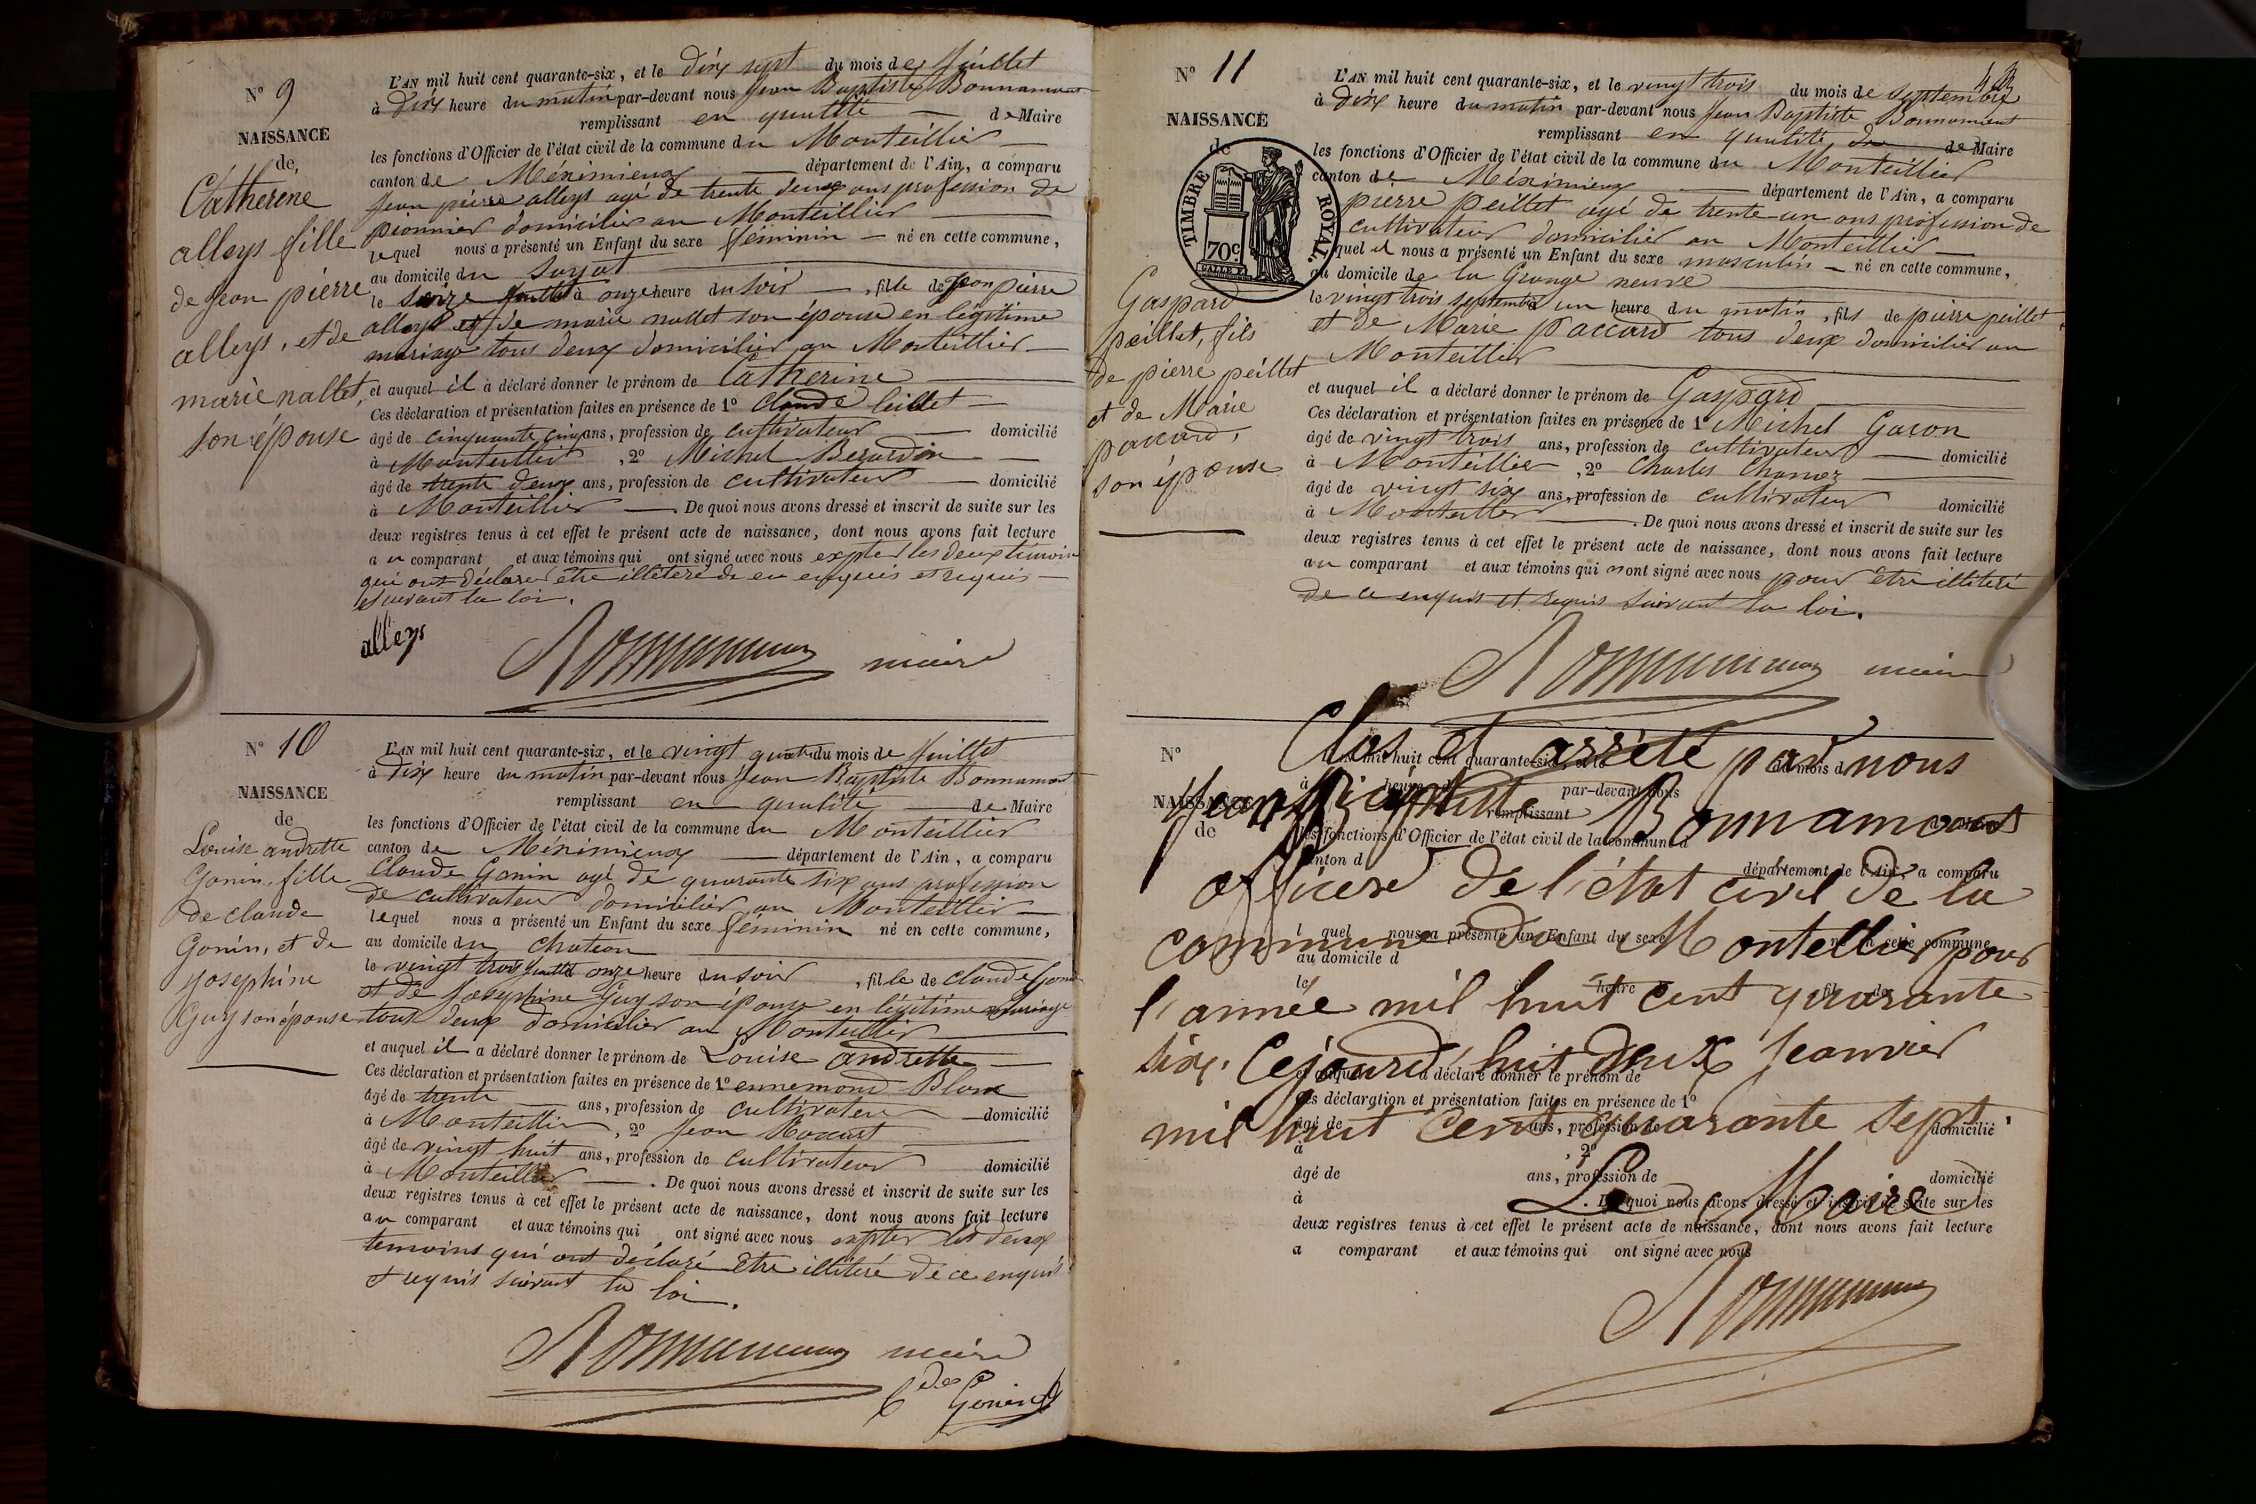 N° 9
NAISSANCE
de
Catherine
alleys fille
de jean pierre
alleys, et de
marie nallet,
son épouse
L'AN mil huit cent quarante-six, et le dix sept du mois de Juillet
à dix heure du matin par-devant nous Jean Baptiste Bonnamour
remplissant en qualité de Maire
les fonctions d'Officier de l'état civil de la commune du Montellier
canton de Méximieux département de l'Ain, a comparu
Jean pierre alleys agé de trente deux ans profession de
pionnier domicilier au Monteillier
lequel nous a présenté un Enfant du sexe féminin né en cette commune,
au domicile du
le seize Juillet à onze heure du soir, fille de jean pierre
alleys et de marie nallet son épouse en légitime
mariage tous deux domicilier au Monteillier
et auquel il à déclaré donner le prénom de Catherine
Ces déclaration et présentation faites en présence de 1° Claude
âgé de cinquante cinq ans, profession de cultivateur domicilié
à Monteillier, 2° Michel Berardin
âgé de trente deux ans, profession de cultivateur domicilié
à Monteillier. De quoi nous avons dressé et inscrit de suite sur les
deux registres tenus à cet effet le présent acte de naissance, dont nous avons fait lecture
au comparant et aux témoins qui ont signé avec nous expter les deux témoin
qui ont déclarer être illéteré de ce enquis et requis
suivant la loi.
alleys
Bonnamour maire
N° 10
NAISSANCE
de
Louise andrette
Gonin, fille
de claude
Gonin, et de
josephine
Guy son épouse
L'AN mil huit cent quarante-six, et le vingt quatre du mois de Juillet
à dix heure du matin par-devant nous Jean Baptiste Bonnamour
remplissant en qualité de Maire
les fonctions d'Officier de l'état civil de la commune du Monteillier
canton de Méximieux département de l'Ain, a comparu
Claude Gonin agé de quarante six ans profession
de cultivateur domicilier au Monteillier
lequel nous a présenté un Enfant du sexe féminin né en cette commune,
au domicile du chateau
le vingt trois Juillet onze heure du soir, fille de claude Gonin
et de Josephine Guy son épouse en légitime mariage
tous deux domicilier au Monteillier
et auquel il a déclaré donner le prénom de Louise andrette
Ces déclaration et présentation faites en présence de 1° ennemond Blanc
âgé de trente ans, profession de cultivateur domicilié
à Monteillier, 2° Jean
âgé de vingt huit ans, profession de cultivateur domicilié
à Monteillier. De quoi nous avons dressé et inscrit de suite sur les
deux registres tenus à cet effet le présent acte de naissance, dont nous avons fait lecture
au comparant et aux témoins qui ont signé avec nous expter les deux
temoins qui ont déclaré être illiteré de ce enquis
et requis suivant la loi.
Bonnamour maire
Cde Gonin
N° 11
NAISSANCE
de
TIMBRE ROYAL
70c
Gaspard
peillet, fils
de pierre peillet
et de Marie
paccard,
son épouse
L'AN mil huit cent quarante-six, et le vingt trois du mois de septembre
à dix heure du matin par-devant nous Jean Baptiste Bonnamour
remplissant en qualité de Maire
les fonctions d'Officier de l'état civil de la commune du Monteillier
canton de Méximieux département de l'Ain, a comparu
pierre peillet agé de trente un ans profession de
cultivateur domicilier au Monteillier
lequel il nous a présenté un Enfant du sexe masculin né en cette commune,
au domicile de la Grange neuve
le vingt trois septembre un heure du matin, fils de pierre peillet
et de Marie paccard tous deux domicilier au
Monteillier
et auquel il a déclaré donner le prénom de Gaspard
Ces déclaration et présentation faites en présence de 1° Michel Gacon
âgé de vingt trois ans, profession de cultivateur domicilié
à Monteillier, 2° Charles
âgé de vingt six ans, profession de cultivateur domicilié
à Monteillier. De quoi nous avons dressé et inscrit de suite sur les
deux registres tenus à cet effet le présent acte de naissance, dont nous avons fait lecture
au comparant et aux témoins qui nont signé avec nous pour être illiteré
de ce enquis et requis suivant la loi.
Bonnamour maire
N°
NAISSANCE
de
Clos et arrêté par nous
Jean Baptiste Bonnamour
officier de l'état civil de la
commune du Montellier pour
l'année mil huit cent quarante
six. Cejourd'hui deux Janvier
mil huit cent quarante sept.
Le Maire
L'AN mil huit cent quarante-six, et le du mois d
à heure d par-devant nous
remplissant
les fonctions d'Officier de l'état civil de la commune d
canton d département de l'Ain, a comparu
l quel nous a présenté un Enfant du sexe né en cette commune,
au domicile d
le heure fil de
et auquel a déclaré donner le prénom de
Ces déclaration et présentation faites en présence de 1°
âgé de ans, profession de domicilié
à , 2°
âgé de ans, profession de domicilié
à . De quoi nous avons dressé et inscrit de suite sur les
deux registres tenus à cet effet le présent acte de naissance, dont nous avons fait lecture
a comparant et aux témoins qui ont signé avec nous
Bonnamour